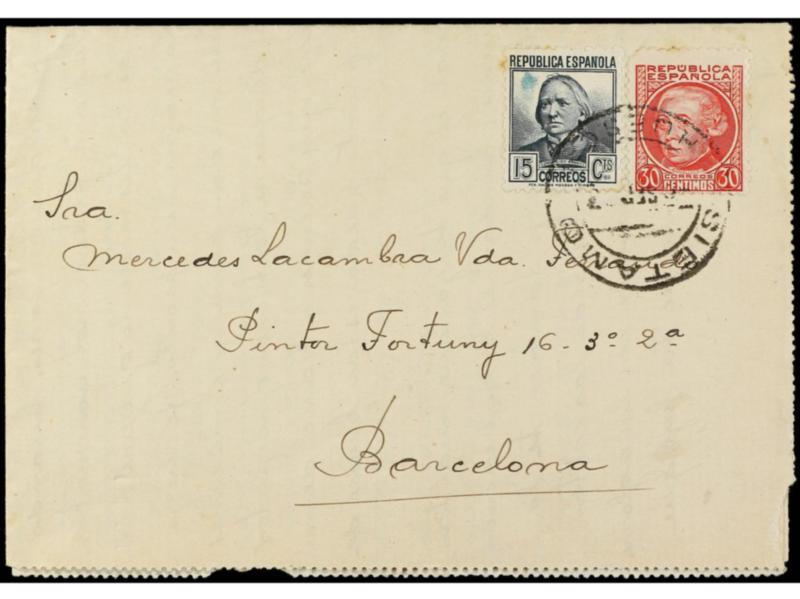 REPÚBLICA ESPAÑOLA
15 Cts
CORREOS
REPÚBLICA
ESPAÑOLA
CORREOS
30 CENTIMOS 30
SIETAMO
Sra.
Mercedes Lacambra Vda. Ferrando
Pintor Fortuny 16-3º 2ª
Barcelona